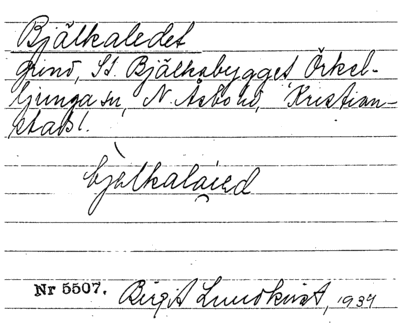 Bjälkaledet
grind, St. Bjälkabygget Örkel-
ljunga sn, N. Åsbo hd, Kristian-
stads l.
bjalkalaied
Nr 5507. Birgit Lundkvist, 1934